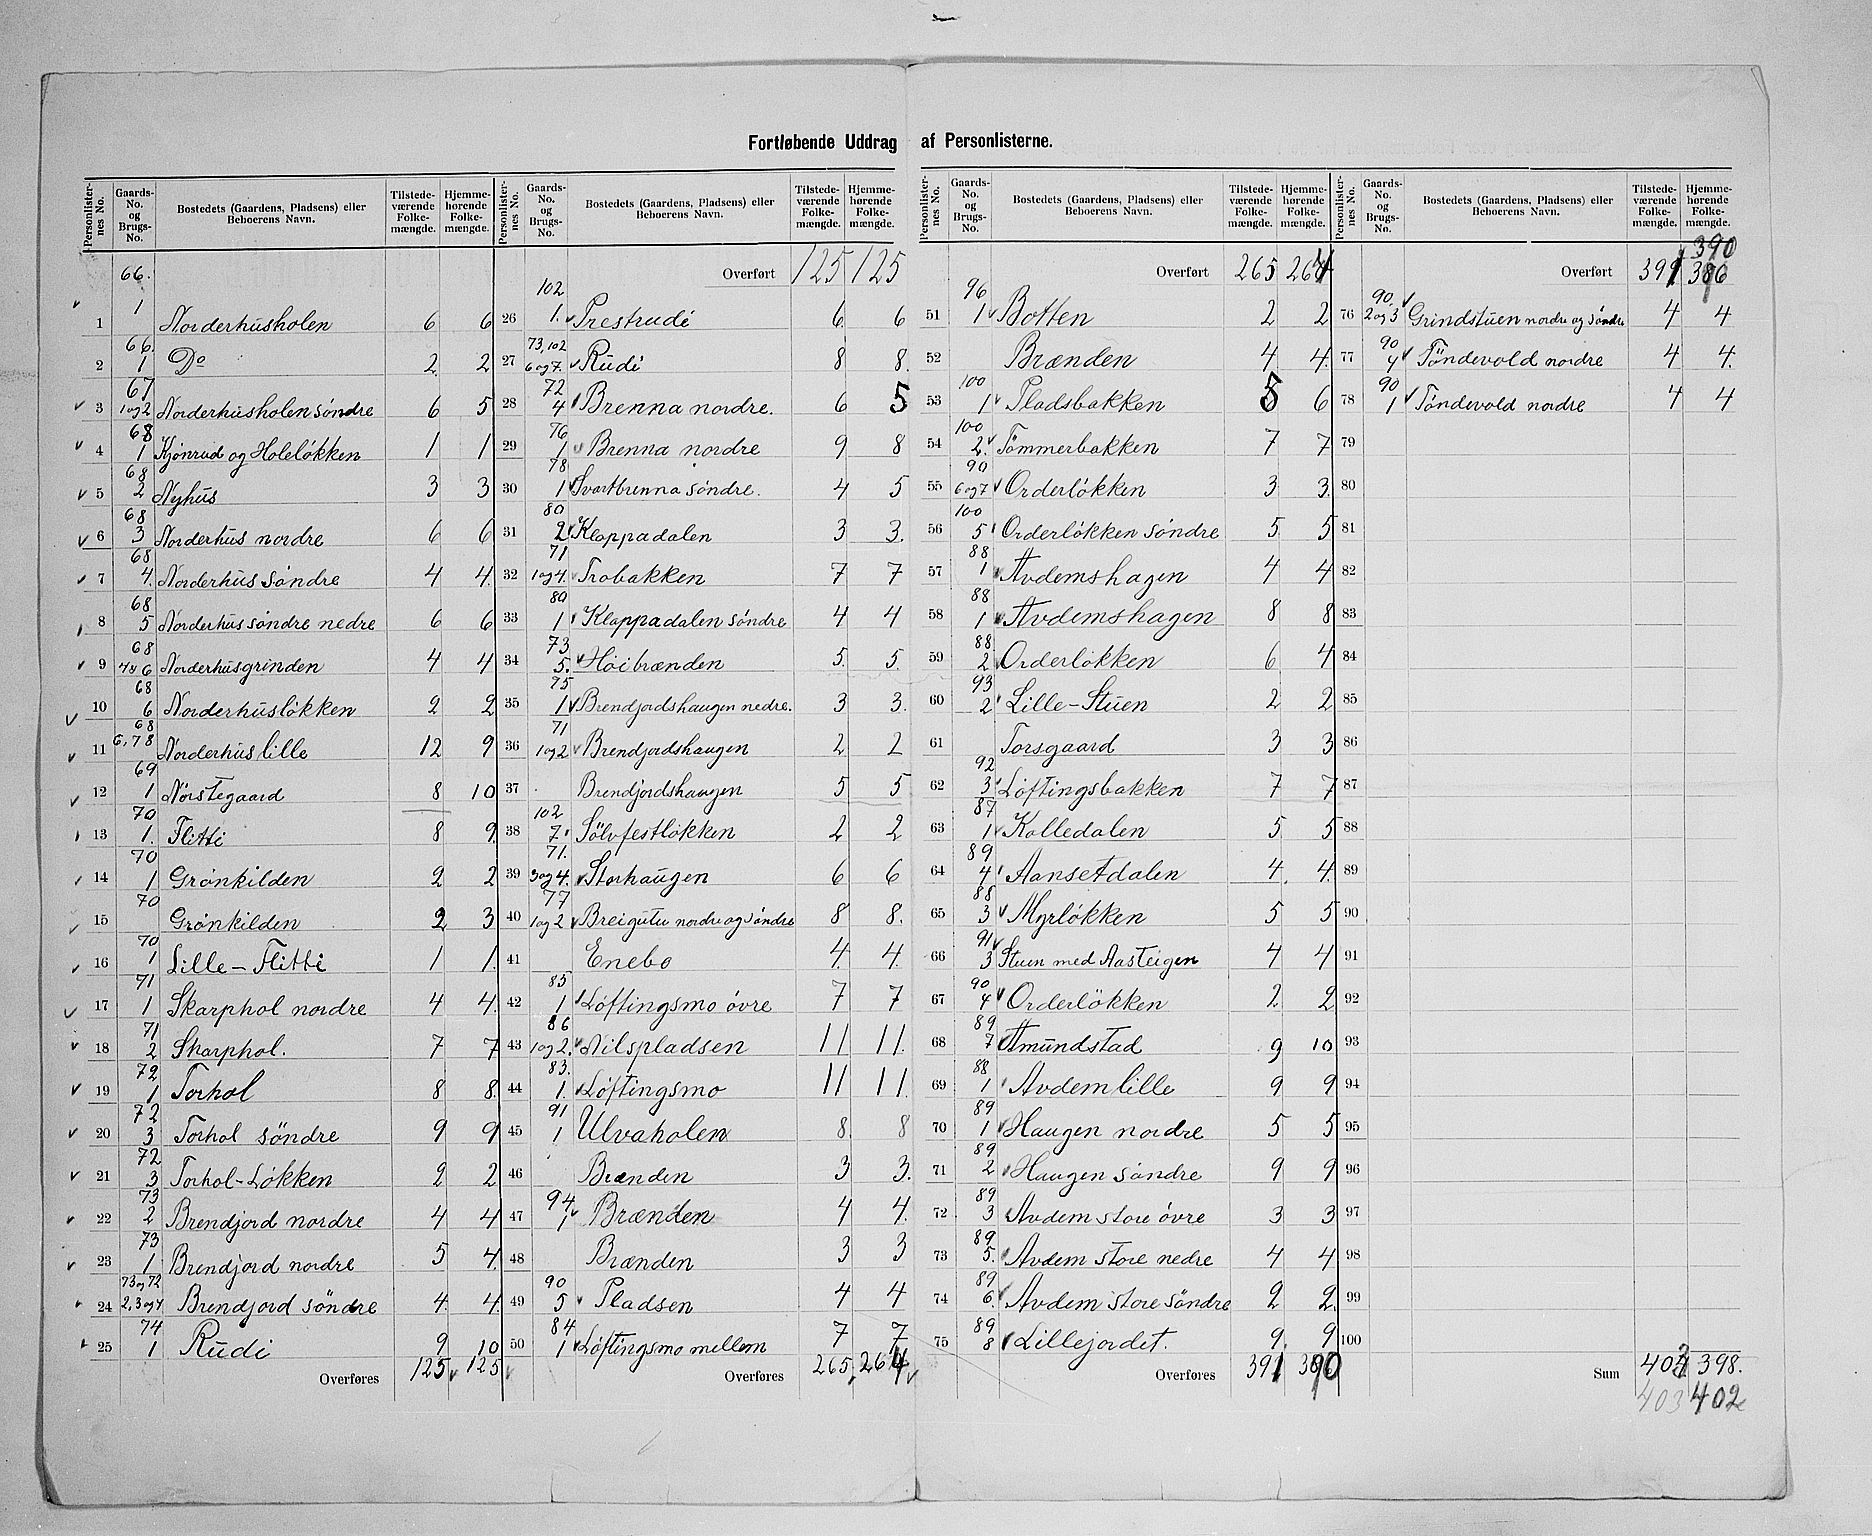 Fortløbende Uddrag af Personlisterne.
Personlister-nes No. Gaards-No. og Brugs-No. Bostedets (Gaardens, Pladsens) eller Beboerens Navn. Tilstede-værende Folke-mængde. Hjemme-hørende Folke-mængde.
1 66. 1 Norderhusholen 6 6
2 66. 1 Do 2 2
3 67 1og2 Norderhusholen søndre 6 5
4 68 1 Kjønrud og Holeløkken 1 1
5 68 2 Nyhus 3 3
6 68 3 Norderhus nordre 6 6
7 68 4. Norderhus søndre 4 4
8 68 5 Norderhus søndre nedre 6 6
9 68 6 Norderhusgrinden 4 4
10 68 6 Norderhusløkken 2 2
11 68 6,78 Norderhus lille 12 9
12 69 1 Nørstegaard 8 10
13 70 1. Flitti 8 9
14 70 1 Grønkilden 2 2
15 70 Grønkilden 2 3
16 70 1 Lille-Flitti 1 1
17 71 1 Skarphol nordre 4 4
18 71 2 Skarphol. 7 7
19 72 1 Torhol 8 8
20 72 3 Torhol søndre 9 9
21 72 3 Torhol-Løkken 2 2
22 73 2 Brendjord nordre 4 4
23 73 1 Brendjord nordre 5 4
24 73og72 2,3og4 Brendjord søndre 4 4
25 74 1 Rudi 9 10
Overføres 125 125
Personlister-nes No. Gaards-No. og Brugs-No. Bostedets (Gaardens, Pladsens) eller Beboerens Navn. Tilstede-værende Folke-mængde. Hjemme-hørende Folke-mængde.
Overført 125 125
26 102 1. Prestrudi 6 6
27 73,102 6og7. Rudi 8 8.
28 72 4 Brenna nordre. 6 5
29 76 1 Brenna nordre 9 8
30 78 1 Svartbrenna søndre. 4 5
31 80 2 Kloppadalen 3 3.
32 71 1og4. Trobakken 7 7
33 80 1 Kloppadalen søndre 4 4
34 73 5. Høibrænden 5. 5.
35 75 1 Brendjordshaugen nedre. 3 3.
36 71 1og2 Brendjordshaugen 2 2
37 Brendjordshaugen 5 5
38 102 7. Sølvfestløkken 2 2
39 71. 3og4. Storhaugen 6 6
40 77 1og2 Breigutu nordre og søndre 8 8.
41 Enebo 4. 4.
42 85 1 Løftingsmo øvre 7 7
43 86 1og2. Nilspladsen 11 11.
44 83. 1. Løftingsmo 11 11.
45 91 1 Ulvaholen 8. 8
46 Brænden 3 3.
47 94 1 Brænden 4 4.
48 Brænden 3 3
49 90 5 Pladsen 4 4
50 84 1 Løftingsmo mellem 7 7
Overføres 265 264
Personlister-nes No. Gaards-No. og Brugs-No. Bostedets (Gaardens, Pladsens) eller Beboerens Navn. Tilstede-værende Folke-mængde. Hjemme-hørende Folke-mængde.
Overført 265 264
51 96 1 Botten 2 2
52 Brænden 4 4.
53 100 1 Pladsbakken 5 6
54 100 2. Tømmerbakken 7 7
55 90 6og7 Orderløkken 3 3.
56 100 5 Orderløkken søndre 5 5
57 88 1 Avdemshagen 4 4
58 88 1 Avdemshagen 8 8
59 88 2 Orderløkken 6 4
60 93 2 Lille-Stuen 2 2
61 Torsgaard 3 3
62 92 3 Løftingsbakken 7 7
63 87 1 Kolledalen 5 5
64 89 4 Aansetdalen 4. 4.
65 88 3 Myrløkken 5 5
66 91 3 Stuen med Aasteigen 4 4
67 90 4 Orderløkken 2 2
68 89 7 Amundstad 9 10
69 88 1 Avdem lille 9 9
70 89 1 Haugen nordre 5 5
71 89 2 Haugen søndre 9 9
72 89 3 Avdem store øvre 3 3
73 89 5. Avdem store nedre 4 4
74 89 6. Avdem store søndre 2 2.
75 89 8 Lillejordet. 9. 9
Overføres 391 390
Personlister-nes No. Gaards-No. og Brugs-No. Bostedets (Gaardens, Pladsens) eller Beboerens Navn. Tilstede-værende Folke-mængde. Hjemme-hørende Folke-mængde.
390
Overført 391 386
76 90 2og3 Grindstuen nordre og søndre 4 4
77 90 4 Tøndevold nordre 4 4.
78 90 1 Tøndevold nordre 4 4
79
80
81
82
83
84
85
86
87
88
89
90
91
92
93
94
95
96
97
98
99
100
Sum 403 398.
403 402